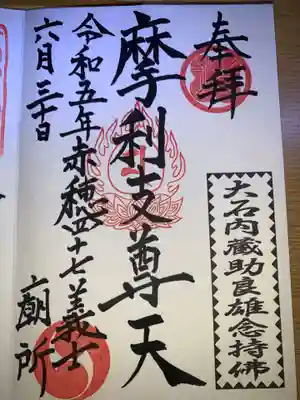 奉拝
大石内蔵助良雄念持佛
摩利支尊天
令和五年赤穂四十七義士
廟所
六月三十日